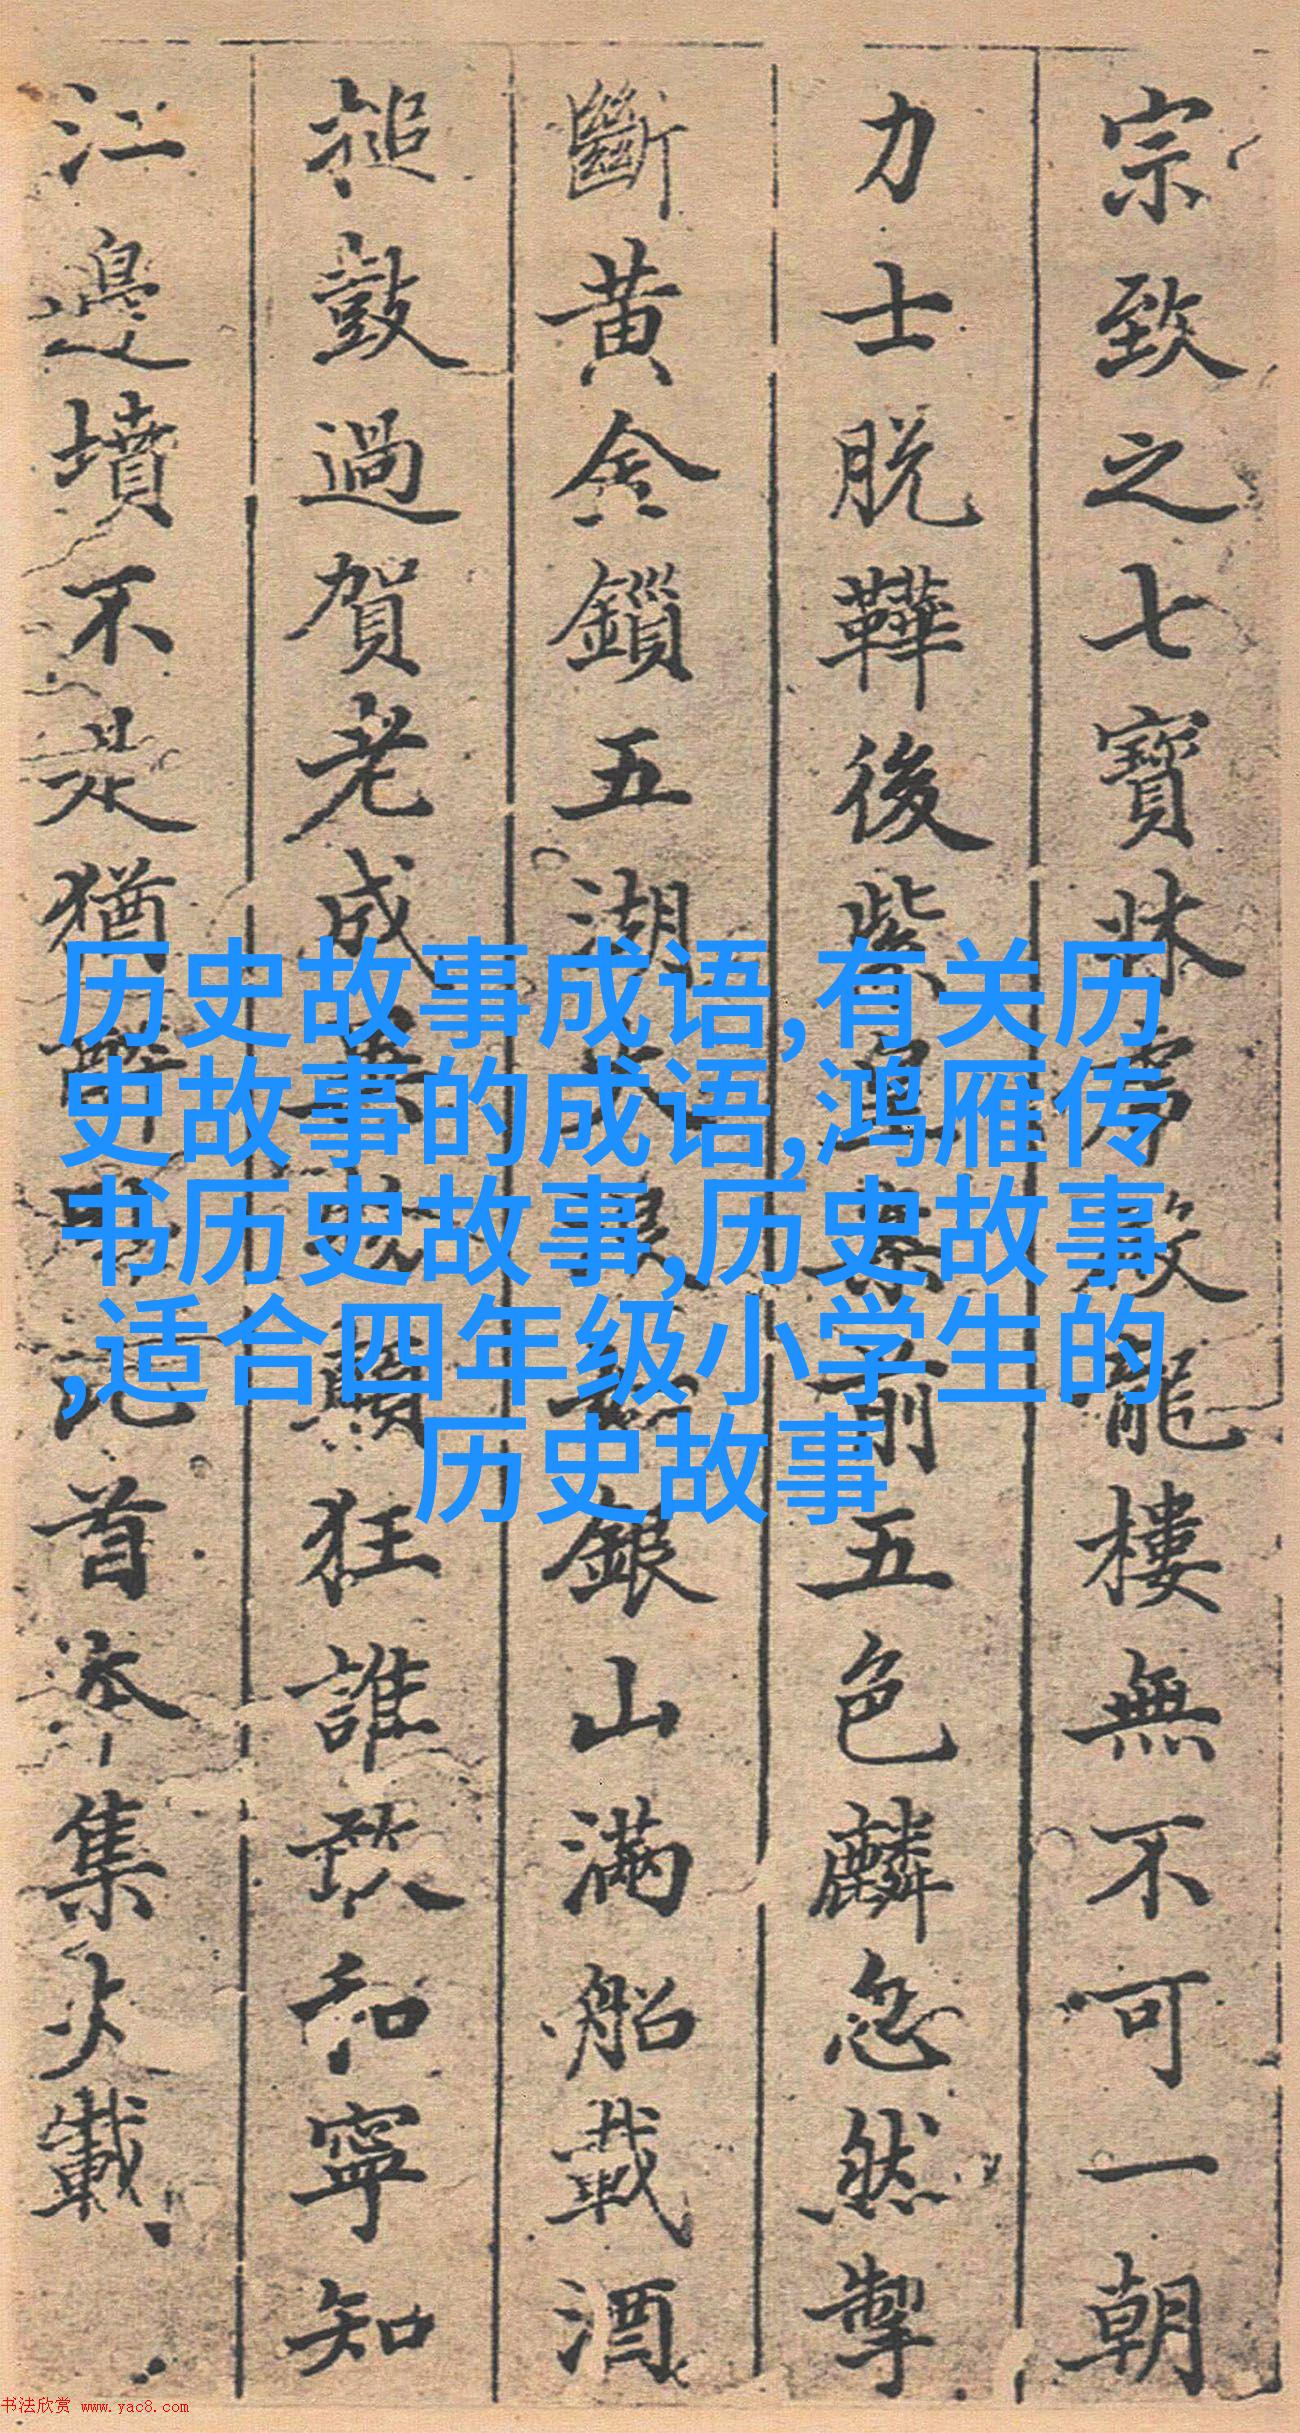 宗致之七寶牀虎殿龍樓無不可一朝
力士脫鞾後紫皇案前五色麟忽然掣
斷黃金鎖五湖大浪如銀山滿船載酒
搥鼓過賀老成異物顛狂誰敢和寧知
江邊墳不是猶醉卧此首本集失載
历史故事成语,有关历
史故事的成语,鸿雁传
书历史故事,历史故事
,适合四年级小学生的
历史故事
书法欣赏 www.yac8.com